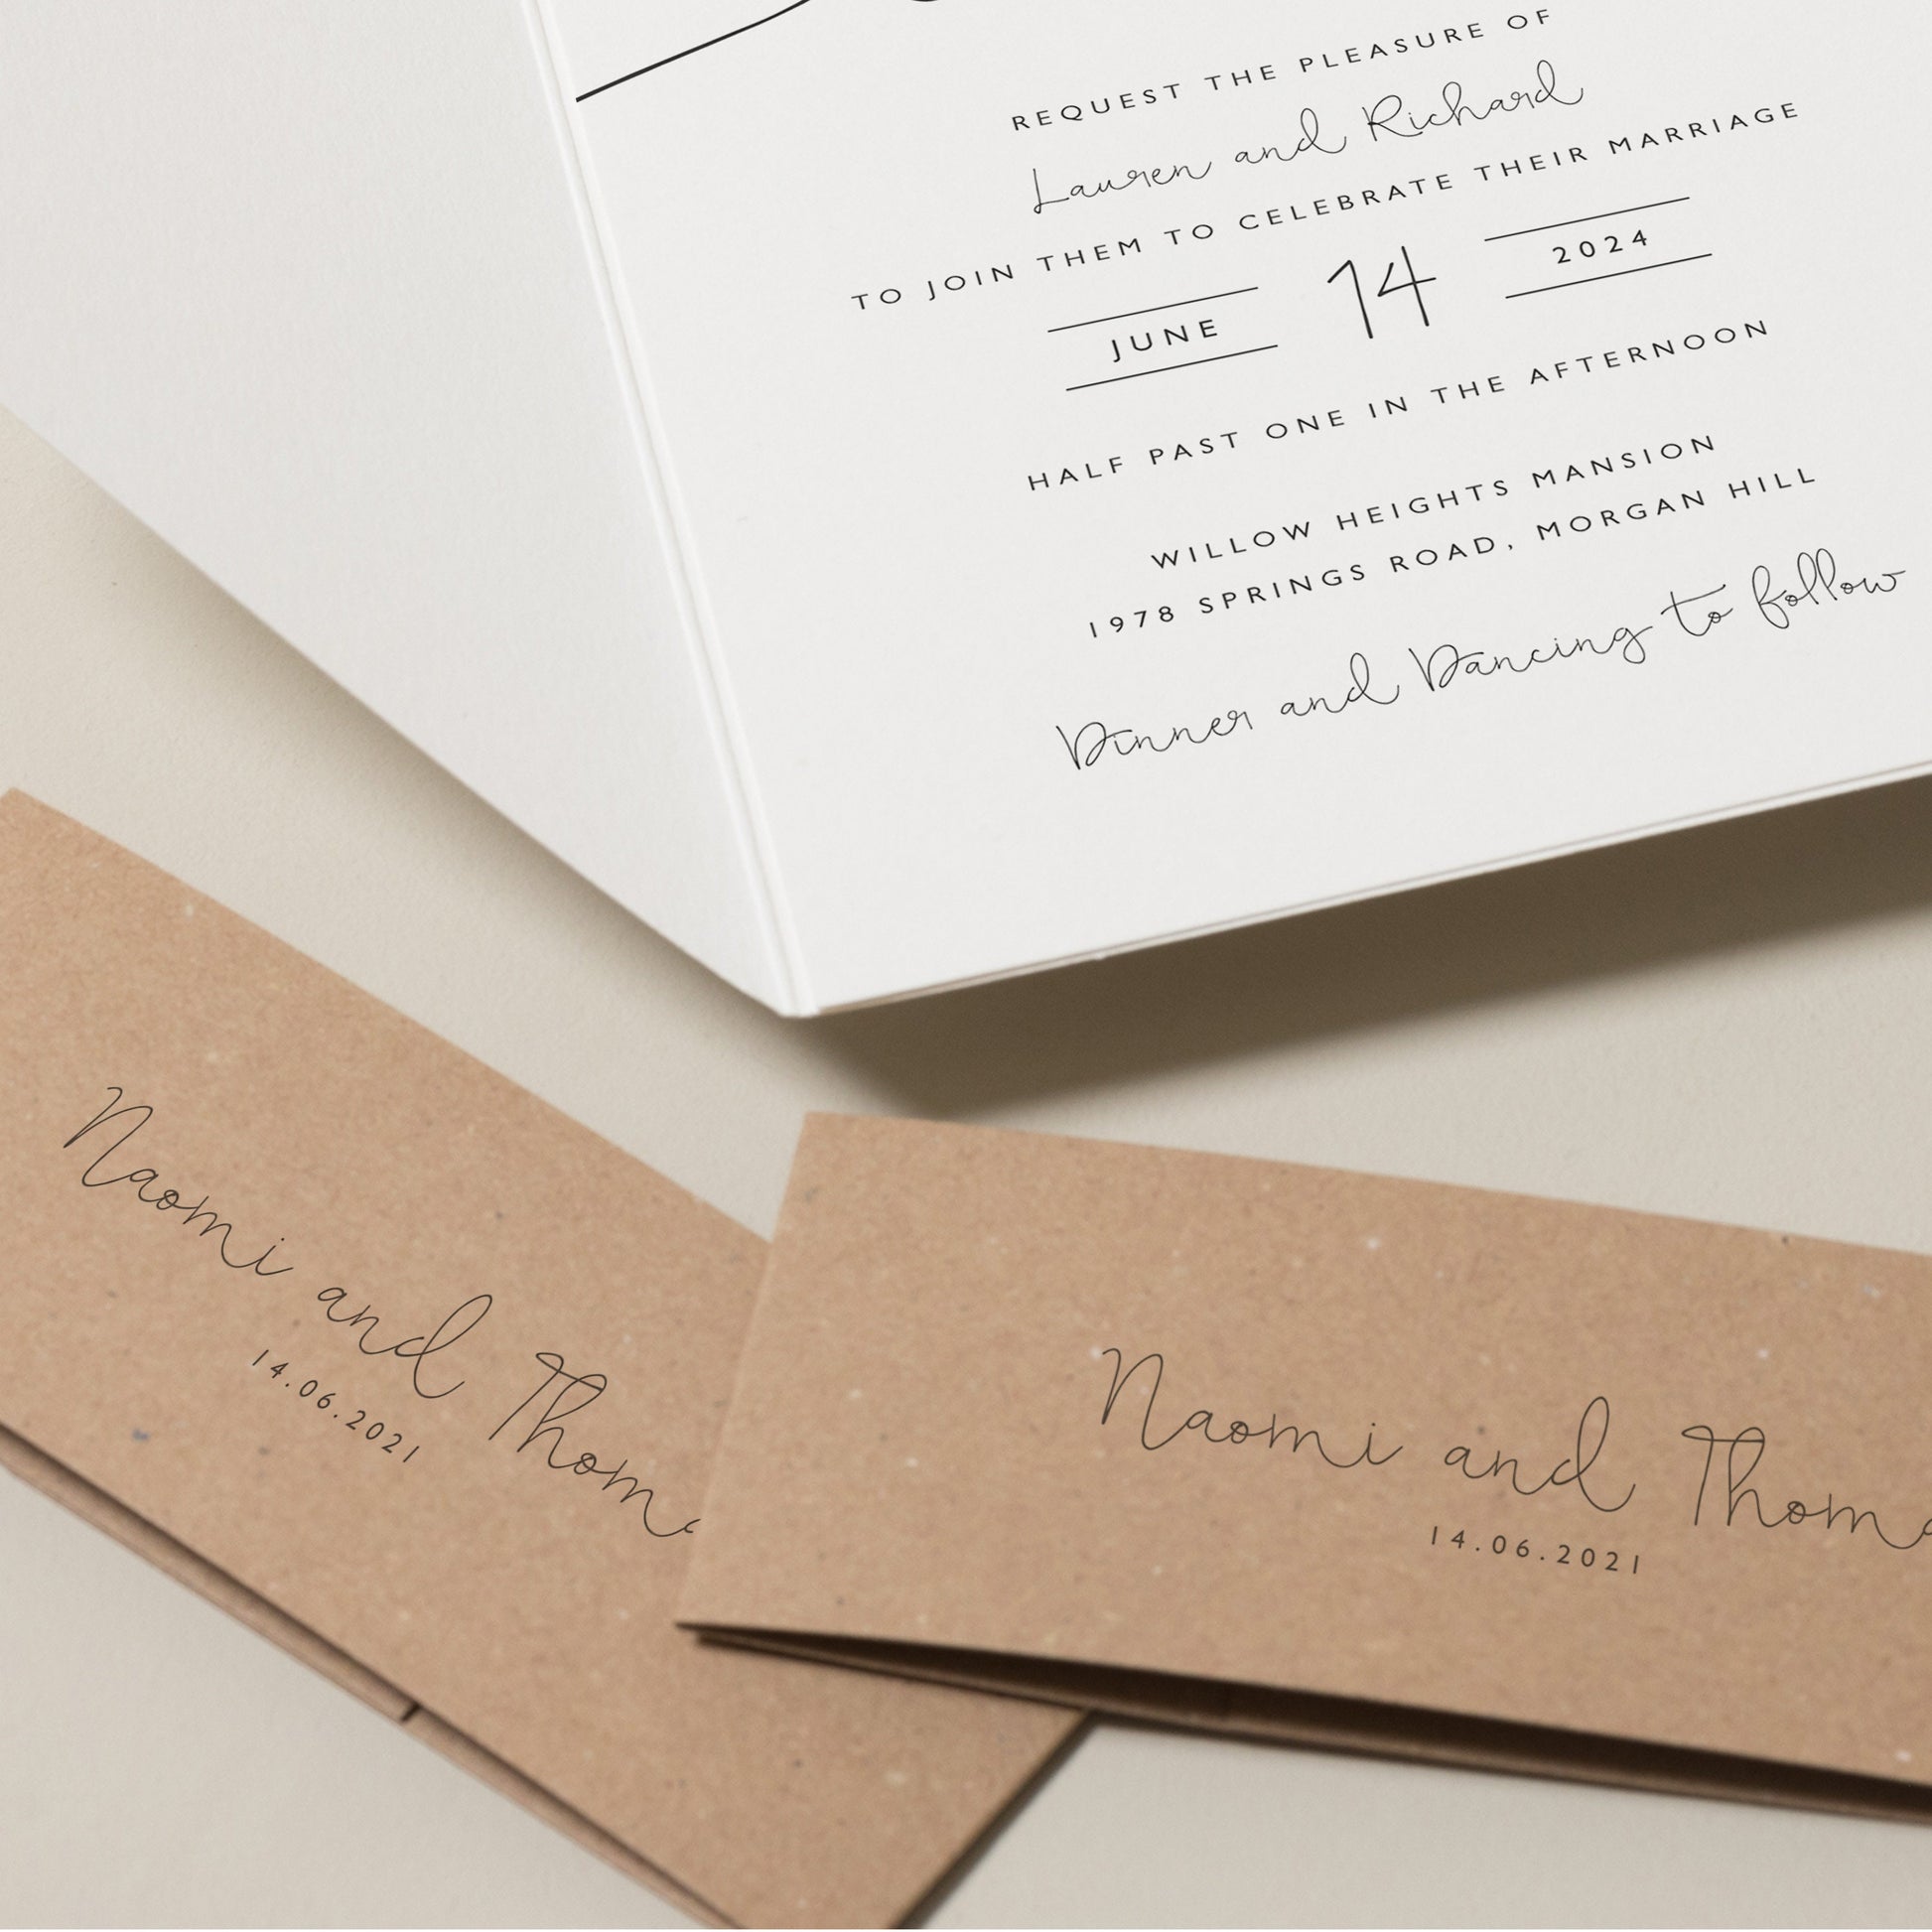 REQUEST THE PLEASURE OF
Lauren and Richard
TO JOIN THEM TO CELEBRATE THEIR MARRIAGE
JUNE 14 2024
HALF PAST ONE IN THE AFTERNOON
WILLOW HEIGHTS MANSION
1978 SPRINGS ROAD, MORGAN HILL
Dinner and Dancing to follow
Naomi and
14.06.2021
Naomi and
14.06.2021